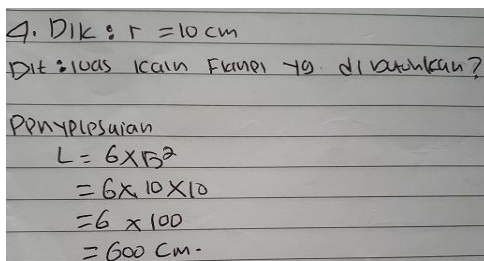 4. Dik : r = 10 cm
Dit : luas kain Flanel yg. dibutuhkan?
Penyelesaian
L = 6 x r²
= 6 x 10 x 10
= 6 x 100
= 600 cm.